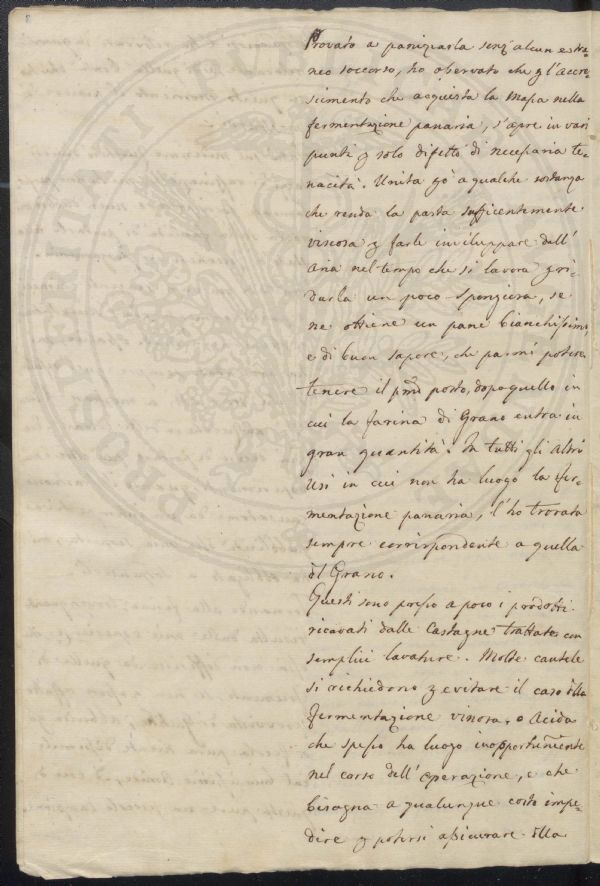 8
Provato a panizzarla senz'alcun estra=
neo soccorso, ho osservato che p l'accre=
scimento che acquista la Massa nella
fermentazione panaria, s'apre in vari
punti p solo difetto di necessaria te=
nacità. Unita pò a qualche sostanza
che renda la pasta sufficentemente
viscosa p farle inviluppare dell'
Aria nel tempo che si lavora p ri=
durla un poco spongiosa, se
ne ottiene un pane bianchissimo
e di buon sapore, che parmi potere
tenere il pmo posto, dopo quello in
cui la farina di Grano entra in
gran quantità. In tutti gli Altri
Usi in cui non ha luogo la fer=
mentazione panaria, l'ho trovata
sempre corrispondente a quella
dl Grano.
Questi sono presso a poco i prodotti
ricavati dalle Castagne trattate con
semplici lavature. Molte cautele
si richiedono p evitare il caso dlla
fermentazione vinosa, o Acida
che spesso ha luogo inopportunamente
nel corso dell'operazione, e che
bisogna a qualunque costo impe=
dire p potersi assicurare dlla